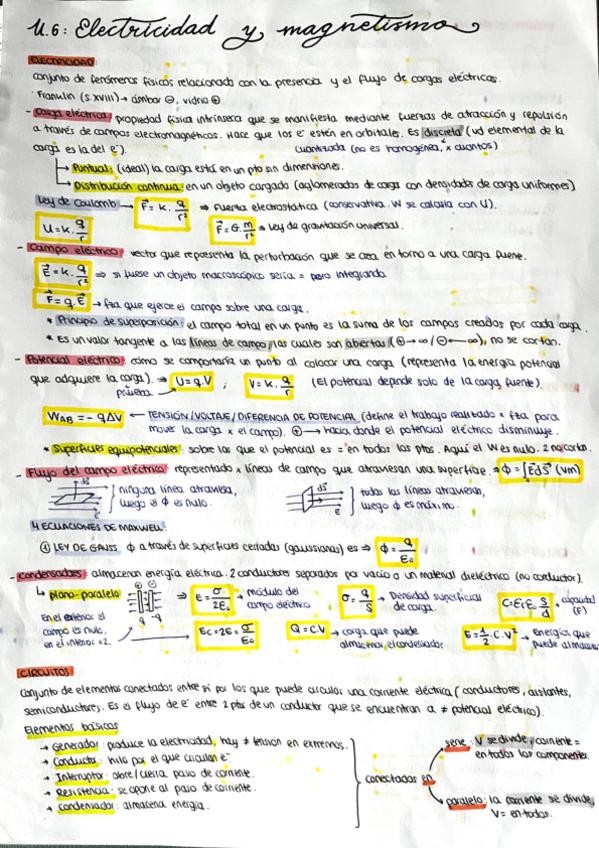 U.6: Electricidad y magnetismo
ELECTRICIDAD:
conjunto de fenómenos físicos relacionado con la presencia y el flujo de cargas eléctricas.
Franklin (s.XVIII) → ámbar ⊖, vidrio ⊕
- Carga eléctrica: propiedad física intrínseca que se manifiesta mediante fuerzas de atracción y repulsión
a través de campos electromagnéticos. Hace que los e⁻ estén en orbitales. Es discreta (ud elemental de la
carga es la del e⁻). cuantizada (no es homogénea, x cuantos)
↳ Puntual: (ideal) la carga está en un pto sin dimensiones.
↳ Distribución continua: en un objeto cargado (aglomerados de carga con densidades de carga uniformes)
Ley de Coulomb → F = k · q/r² ⇒ Fuerza electrostática (conservativa. W se calcula con U).
U = k · q/r F = G · m/r² → ley de gravitación universal.
- Campo eléctrico: vector que representa la perturbación que se crea en torno a una carga fuente.
E = k · q/r² ⇒ si fuese un objeto macroscópico sería = pero integrando
F = q · E → fza que ejerce el campo sobre una carga.
* Principio de superposición: el campo total en un punto es la suma de los campos creados por cada carga.
* Es un valor tangente a las líneas de campo, las cuales son abiertas (⊕→∞ / ⊖←∞), no se cortan.
- Potencial eléctrico: cómo se comportaría un punto al colocar una carga (representa la energía potencial
que adquiere la carga). ⇒ U = q.V ; V = k. q/r (El potencial depende solo de la carga fuente).
prueba
W_AB = -qΔV ← TENSIÓN/VOLTAJE/DIFERENCIA DE POTENCIAL (define el trabajo realizado x fza para
mover la carga x el campo). ⊕ → hacia donde el potencial eléctrico disminuye.
* Superficies equipotenciales: sobre las que el potencial es = en todos los ptos. Aquí el W es nulo. 2 no cortan.
- Flujo del campo eléctrico: representado x líneas de campo que atraviesan una superficie. ⇒ ϕ = ∫E dS (Vm)
dS ninguna línea atraviesa, dS todas las líneas atraviesan,
luego el ϕ es nulo. luego el ϕ es máximo.
4 ECUACIONES DE MAXWELL:
① LEY DE GAUSS: ϕ a través de superficies cerradas (gaussianas) es ⇒ ϕ = q/ε₀
- Condensadores: almacenan energía eléctrica. 2 conductores separados por vacío o un material dieléctrico (no conductor).
↳ plano-paralelo ⊕ ⊖ ⇒ E = σ/2ε₀ → módulo del campo eléctrico σ = q/S → Densidad superficial de carga. C = ε₁ε₀ S/d → capacidad (F)
En el exterior el
campo es nulo,
en el interior x2. q -q Ec = 2E = σ/ε₀ Q = C.V → carga que puede almacenar el condensador E = ½ · C.V² → Energía que puede almacenar
CIRCUITOS:
Conjunto de elementos conectados entre sí por los que puede circular una corriente eléctrica (conductores, aislantes,
semiconductores). Es el flujo de e⁻ entre 2 ptos de un conductor que se encuentran a ≠ potencial eléctrico).
Elementos básicos
→ Generador: produce la electricidad, hay ≠ tensión en extremos.
→ Conductor: hilo por el que circulan e⁻
→ Interruptor: abre/cierra paso de corriente.
→ Resistencia: se opone al paso de corriente.
→ Condensador: almacena energía.
conectados en
serie: V se divide, corriente =
en todos los componentes.
paralelo: la corriente se divide,
V = en todos.